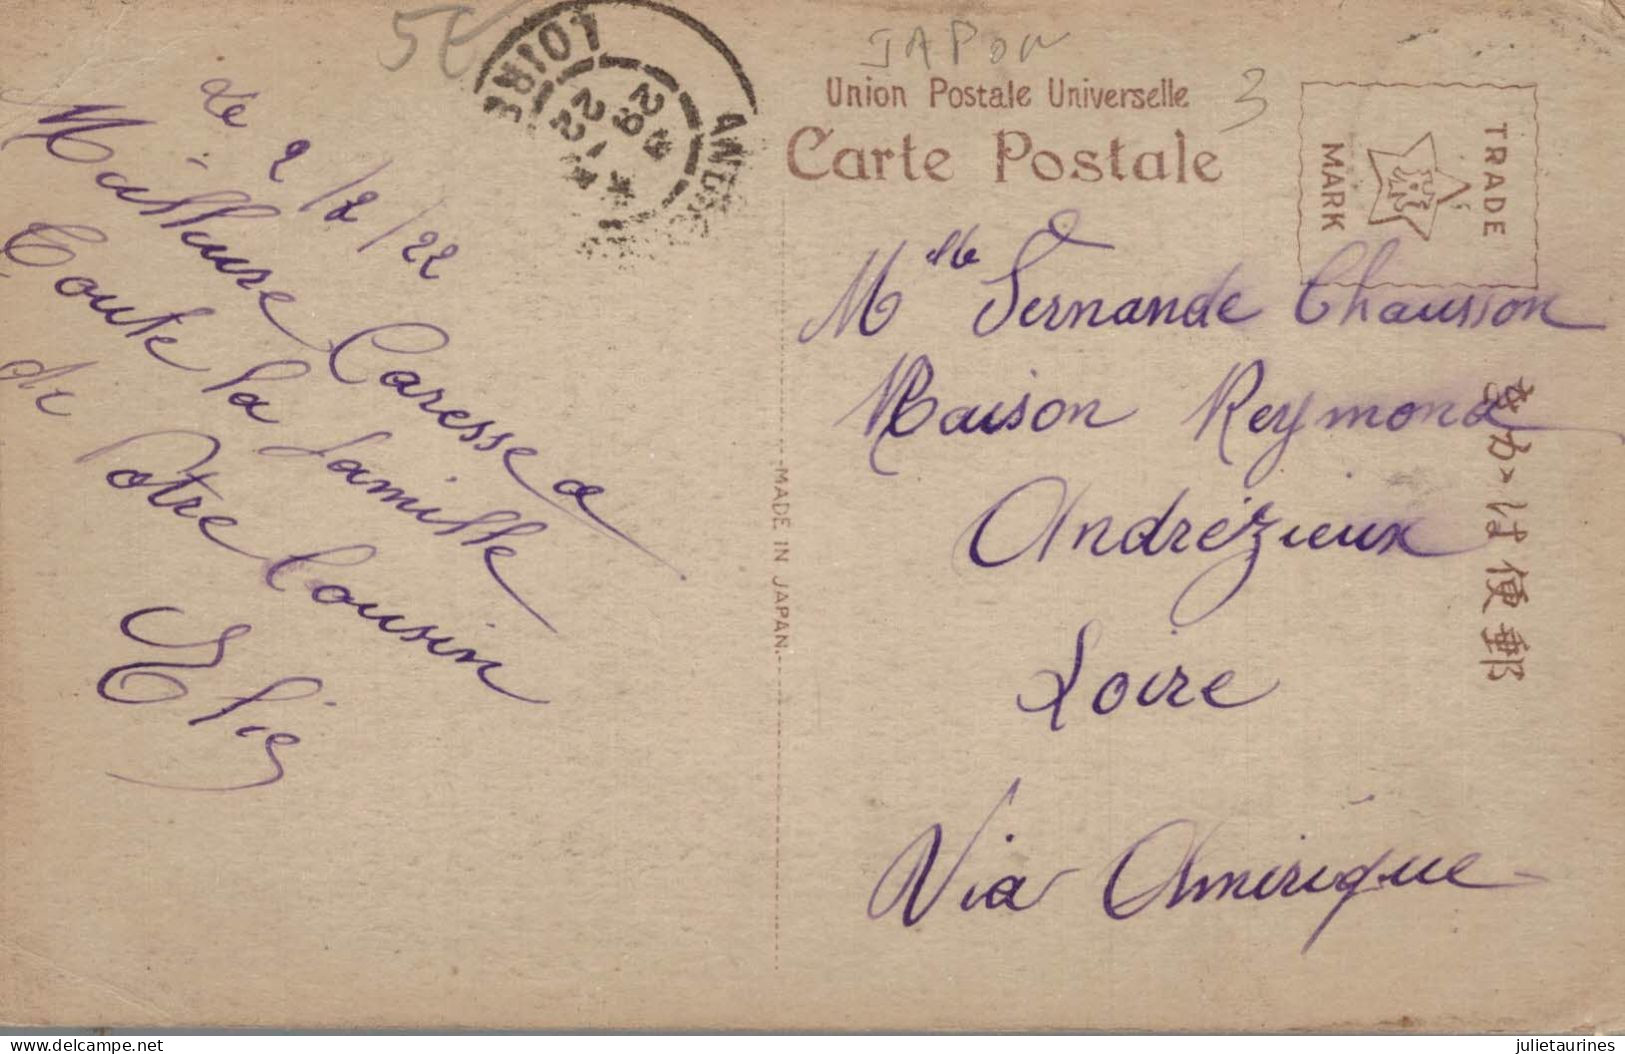 5€
JAPON
3
Union Postale Universelle
Carte Postale
TRADE
MARK
LOIRE
Le 2/2/22
Meilleure Caresse a
Toute la famille
de Votre Cousin
Elie
MADE IN JAPAN.
Mlle Fernande Chausson
Maison Reymond
Andrézieux
Loire
Via Amérique
きかは便郵
delcampe.net
julietaurines